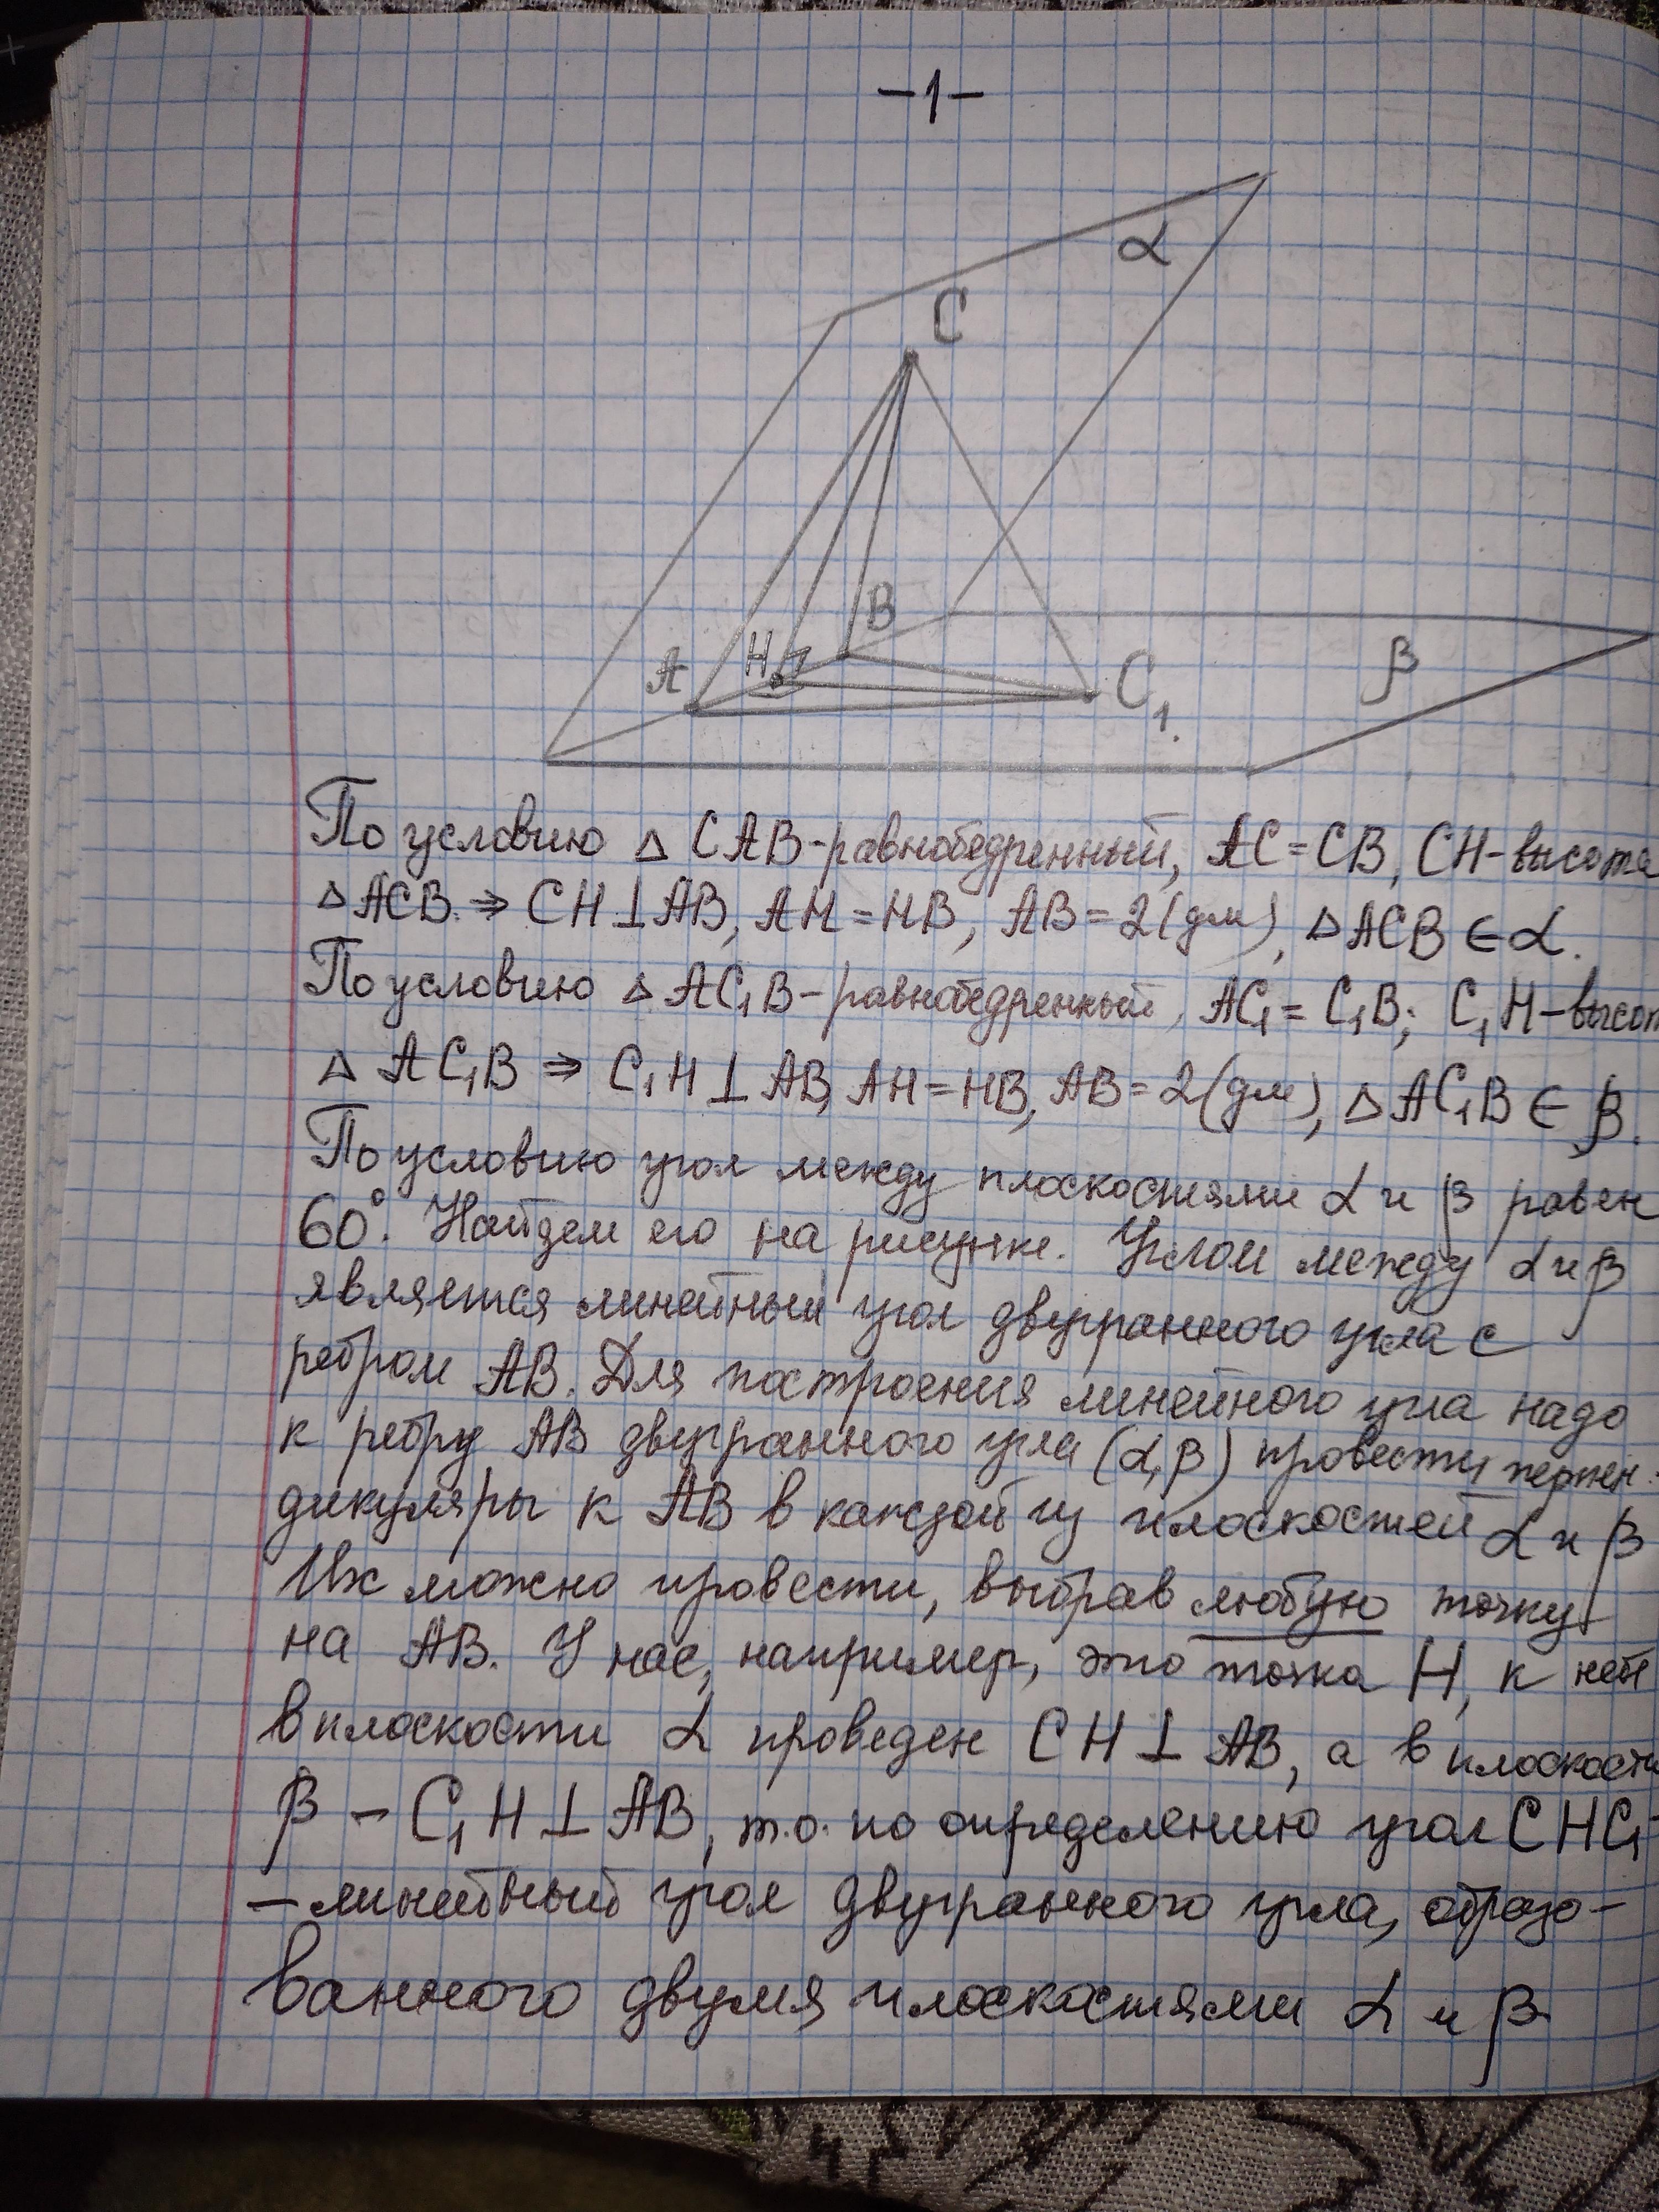 -1-
α
C
B
A
H
C₁.
β
По условию △ CAB-равнобедренный, AC=CB, CH-высота
△ACB. ⇒ CH⊥AB, AH=HB, AB=2(дм), △ACB∈α.
По условию △AC₁B-равнобедренный, AC₁=C₁B; C₁H-высот
△ AC₁B ⇒ C₁H⊥AB, AH=HB, AB=2(дм), △AC₁B∈β.
По условию угол между плоскостями α и β равен
60°. Найдем его на рисунке. Углом между α и β
является линейный угол двугранного угла с
ребром AB. Для построения линейного угла надо
к ребру AB двугранного угла (α,β) провести перпен-
дикуляры к AB в каждой из плоскостей α и β
Их можно провести, выбрав любую точку
на AB. У нас, например, это точка H, к ней
в плоскости α проведен CH⊥AB, а в плоскости
β - C₁H⊥AB, т.о. по определению угол CHC₁
- линейный угол двугранного угла, образо-
ванного двумя плоскостями α и β